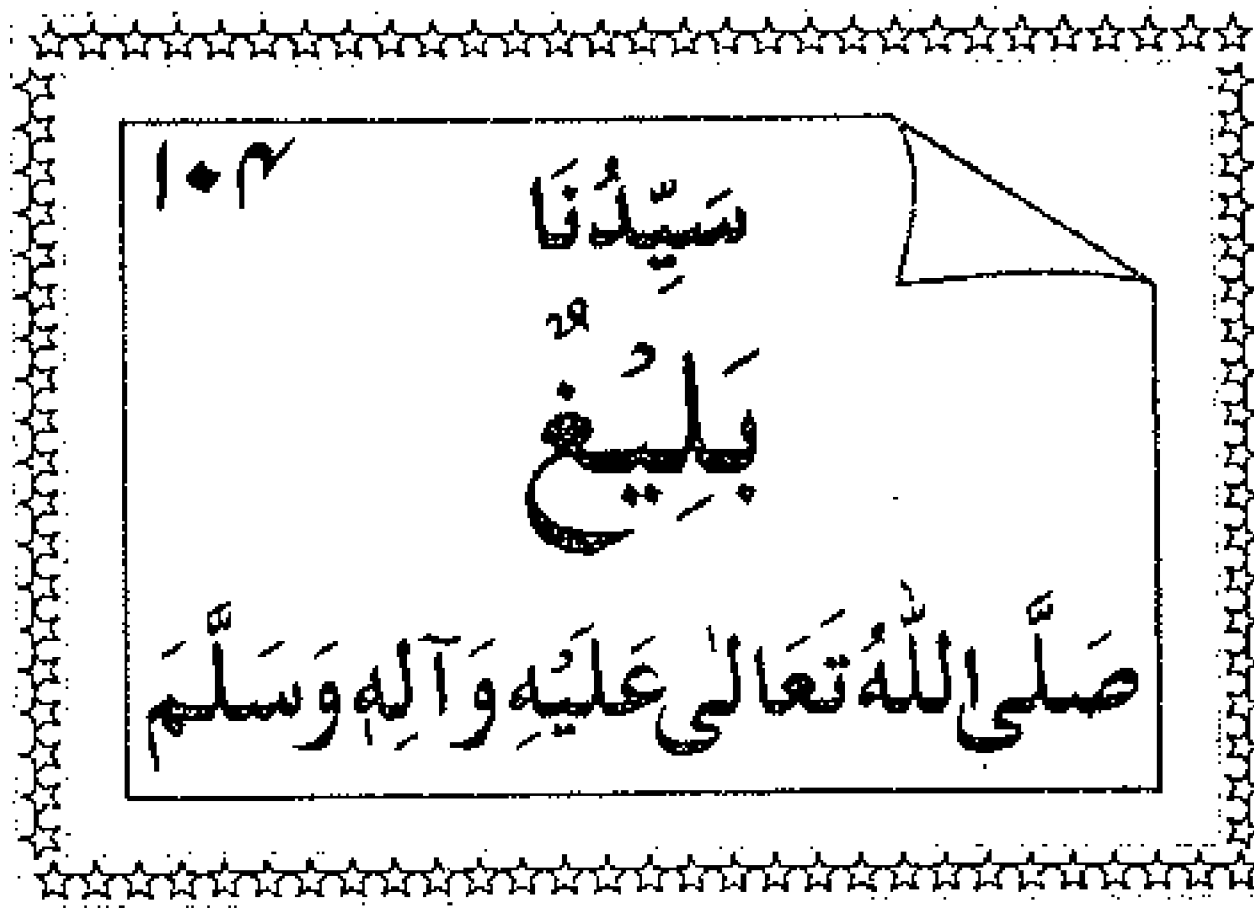 ۱۰۴
سَيِّدُنَا
بَلِيْغٌ
صَلَّى اللّٰهُ تَعَالٰى عَلَيْهِ وَآلِهٖ وَسَلَّمَ